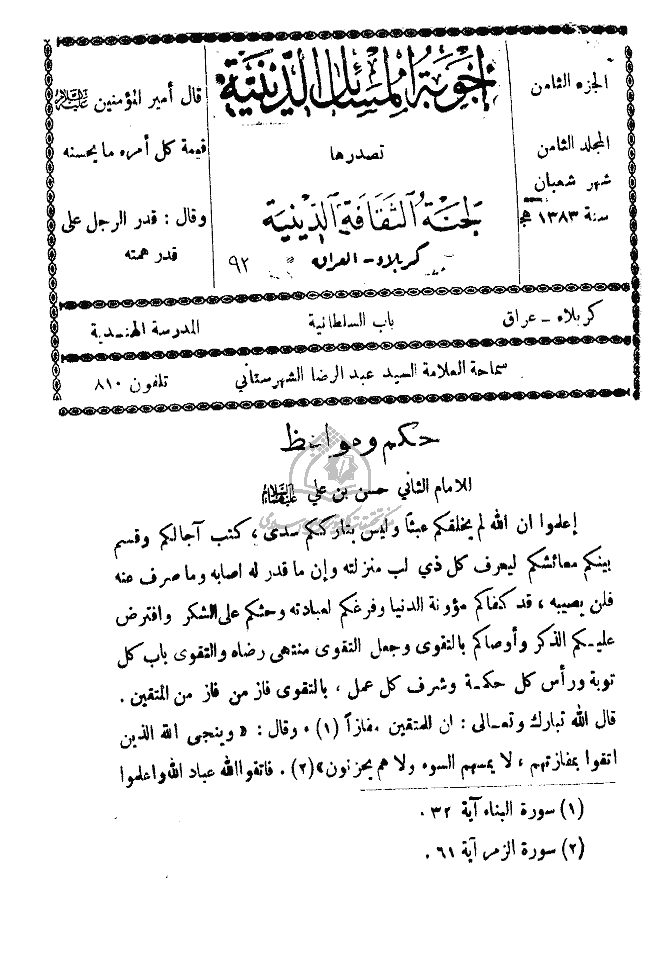 الجزء الثامن
المجلد الثامن
شهر شعبان
سنة ١٣٨٣ هج
اجوبة المسائل الدينية
تصدرها
لجنة الثقافة الدينية
كربلاء - العراق
٩٢
قال أمير المؤمنين عليه السلام
قيمة كل أمره ما يحسنه
وقال : قدر الرجل على
قدر همته
كربلاء - عراق باب السلطانية المدرسة الهندية
سماحة العلامة السيد عبد الرضا الشهرستاني تلفون ٨١٠
حكم ومواعظ
للامام الثاني حسن بن علي عليه السلام
إعلموا ان الله لم يخلقكم عبثاً وليس بتارككم سدى ، كتب آجالكم وقسم
بينكم معائشكم ليعرف كل ذي لب منزلته وإن ما قدر له اصابه وما صرف عنه
فلن يصيبه ، قد كفاكم مؤونة الدنيا وفرغكم لعبادته وحثكم على الشكر وافترض
عليكم الذكر وأوصاكم بالتقوى وجعل التقوى منتهى رضاه والتقوى باب كل
توبة ورأس كل حكمة وشرف كل عمل ، بالتقوى فاز من فاز من المتقين .
قال الله تبارك وتعالى : ان للمتقين مفازاً (١) ، وقال : « وينجى الله الذين
اتقوا بمفازتهم ، لا يمسهم السوء ولا هم يحزنون» (٢) . فاتقوا الله عباد الله واعلموا
(١) سورة البناء آية ٣٢ .
(٢) سورة الزمر آية ٦١ .